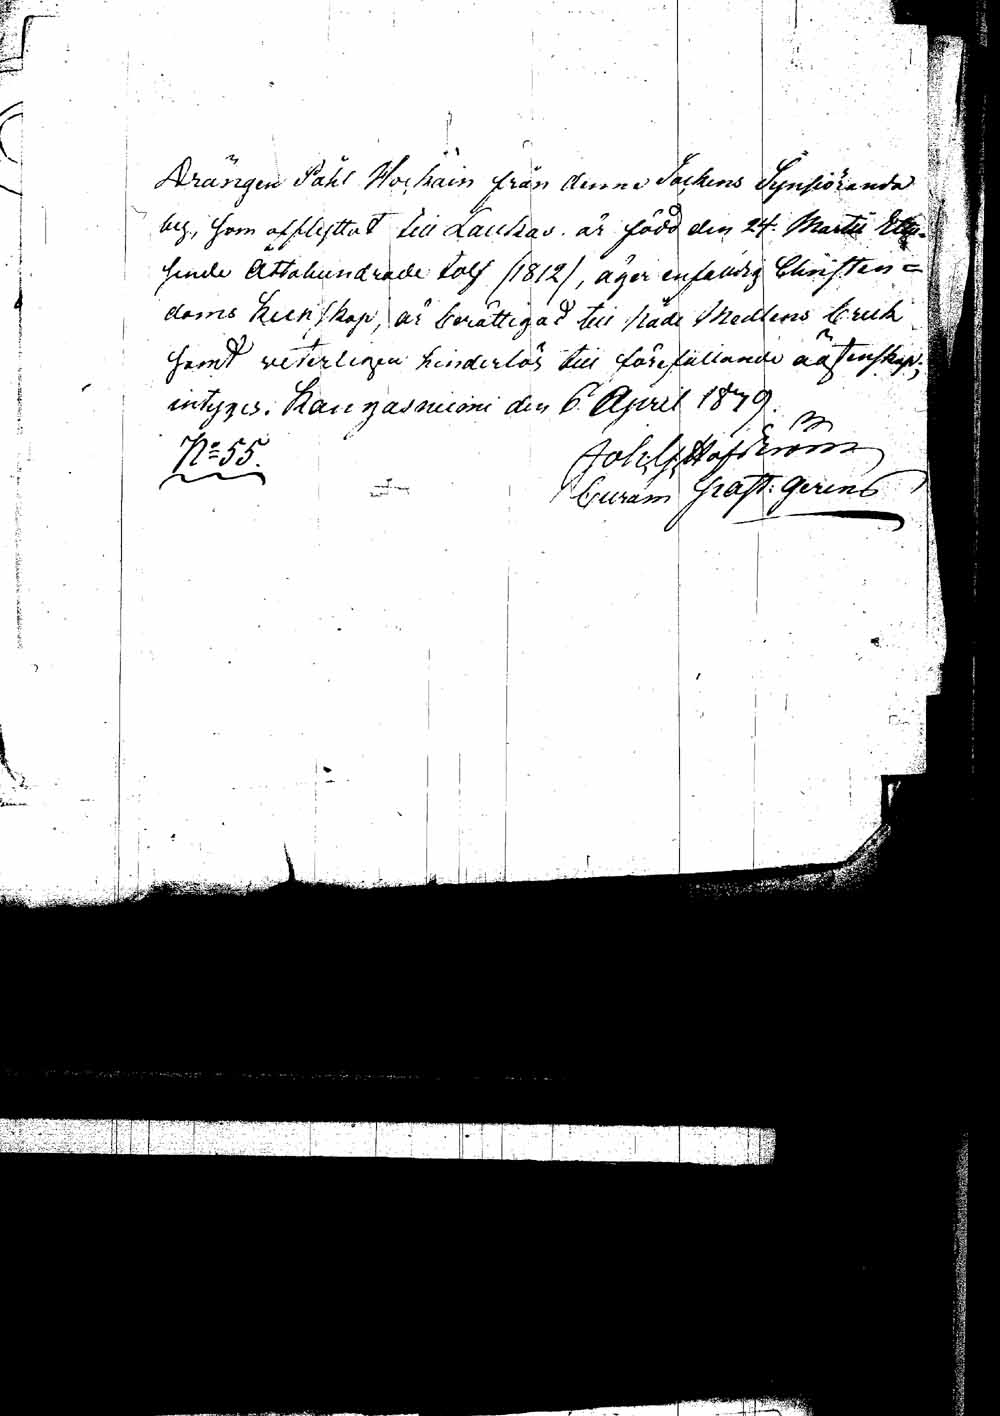 Drängen Påhl Hockain från denne Sockens Synsiöranda
by, som afflyttat till Laukas. är född den 24 Martii Ettu-
sende Åttahundrade tolf /1812/, äger enfaldig Christen=
doms kunskap, är berättigad till Nåde Medlens bruk
samt veterligen hinderlös till förefallande äktenskap;
intyges. Kangasniemi den 6 April 1849.
No 55.
Hofström
Curam Past: gerens